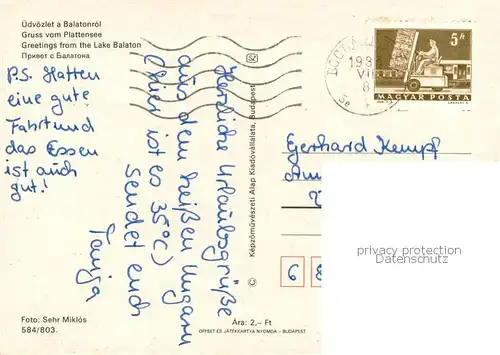 Üdvözlet a Balatonról
Gruss vom Plattensee
Greetings from the Lake Balaton
Привет с Балатона
P.S. Hatten
eine gute
Fahrt und
das Essen
ist auch
gut!
Herzliche Urlaubsgrüße
aus dem heißen Ungarn
(hier ist es 35°C)
sendet euch
Tanja
Foto: Sehr Miklós
584/803.
Ára: 2,– Ft
OFFSET ÉS JÁTÉKKÁRTYA NYOMDA – BUDAPEST
© Képzőművészeti Alap Kiadóvállalata, Budapest
5 Ft
MAGYAR POSTA
Gerhard Kempf
6
privacy protection
Datenschutz